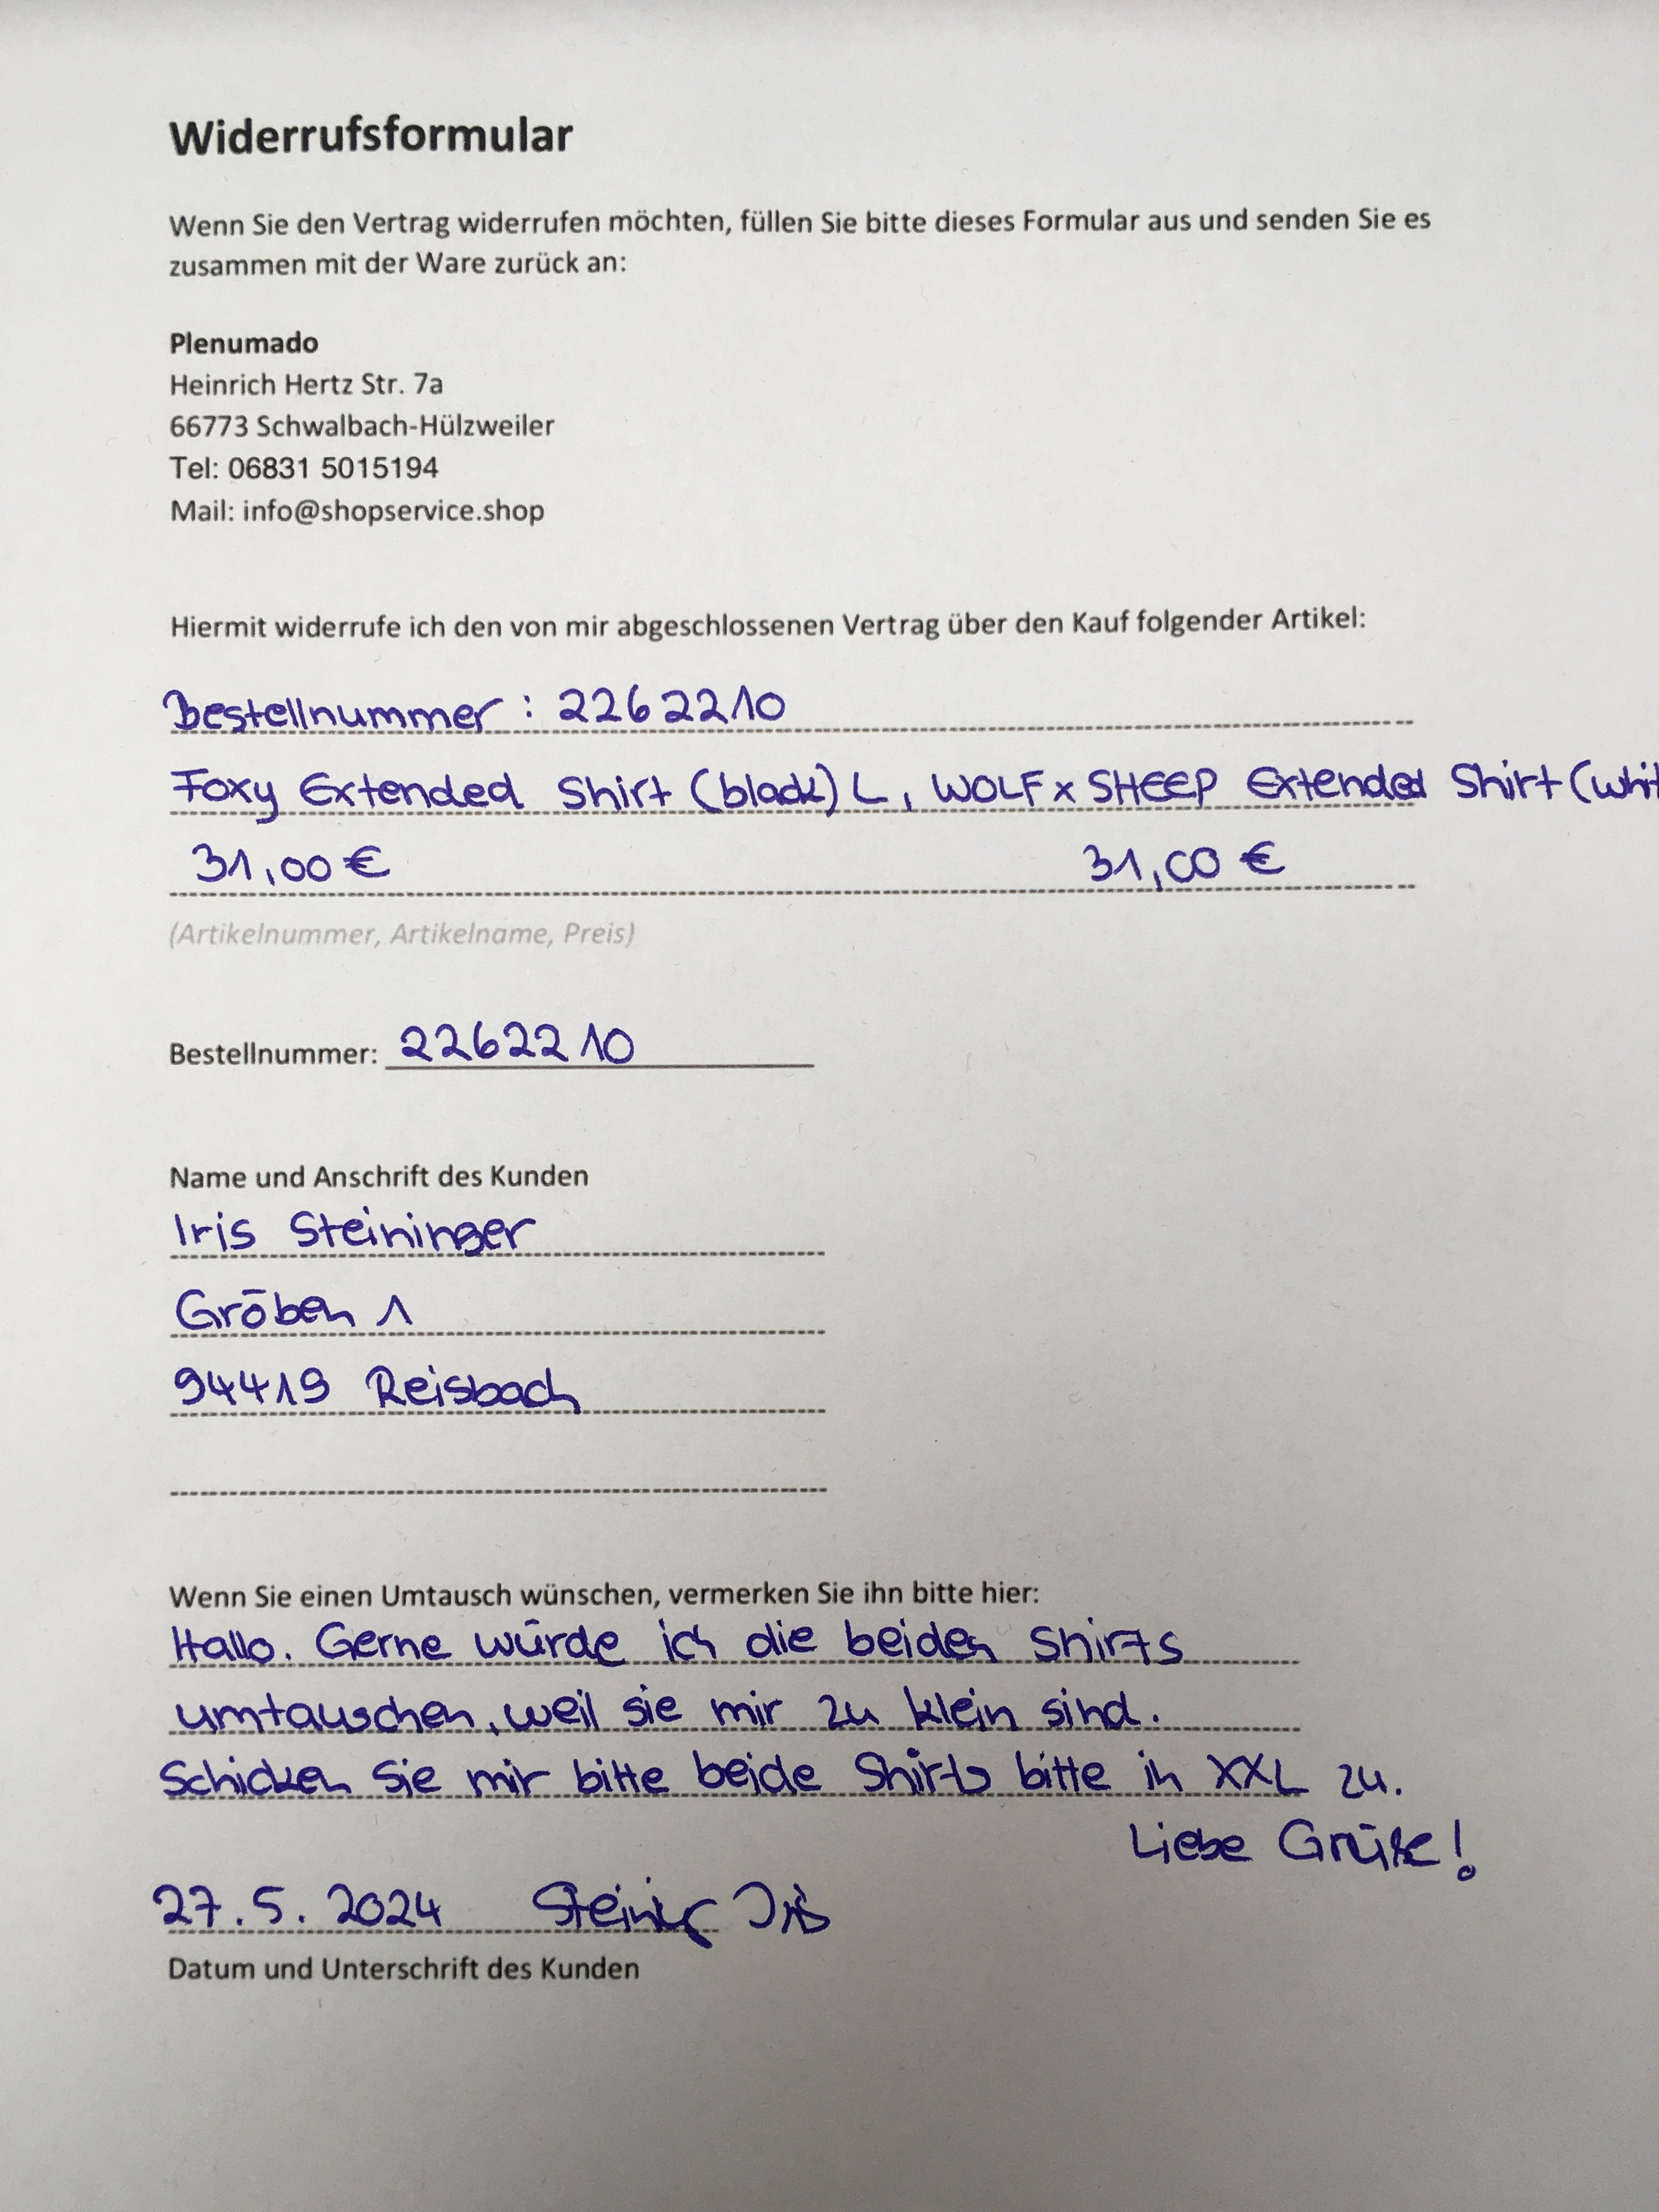 Widerrufsformular
Wenn Sie den Vertrag widerrufen möchten, füllen Sie bitte dieses Formular aus und senden Sie es
zusammen mit der Ware zurück an:
Plenumado
Heinrich Hertz Str. 7a
66773 Schwalbach-Hülzweiler
Tel: 06831 5015194
Mail: info@shopservice.shop
Hiermit widerrufe ich den von mir abgeschlossenen Vertrag über den Kauf folgender Artikel:
Bestellnummer: 2262210
Foxy Extended Shirt (black) L, WOLF x SHEEP Extended Shirt (whit
31,00 € 31,00 €
(Artikelnummer, Artikelname, Preis)
Bestellnummer: 2262210
Name und Anschrift des Kunden
Iris Steininger
Gröben 1
94419 Reisbach
Wenn Sie einen Umtausch wünschen, vermerken Sie ihn bitte hier:
Hallo. Gerne würde ich die beiden Shirts
umtauschen, weil sie mir zu klein sind.
Schicken Sie mir bitte beide Shirts bitte in XXL zu.
Liebe Grüße!
27.5.2024 Steininger Iris
Datum und Unterschrift des Kunden